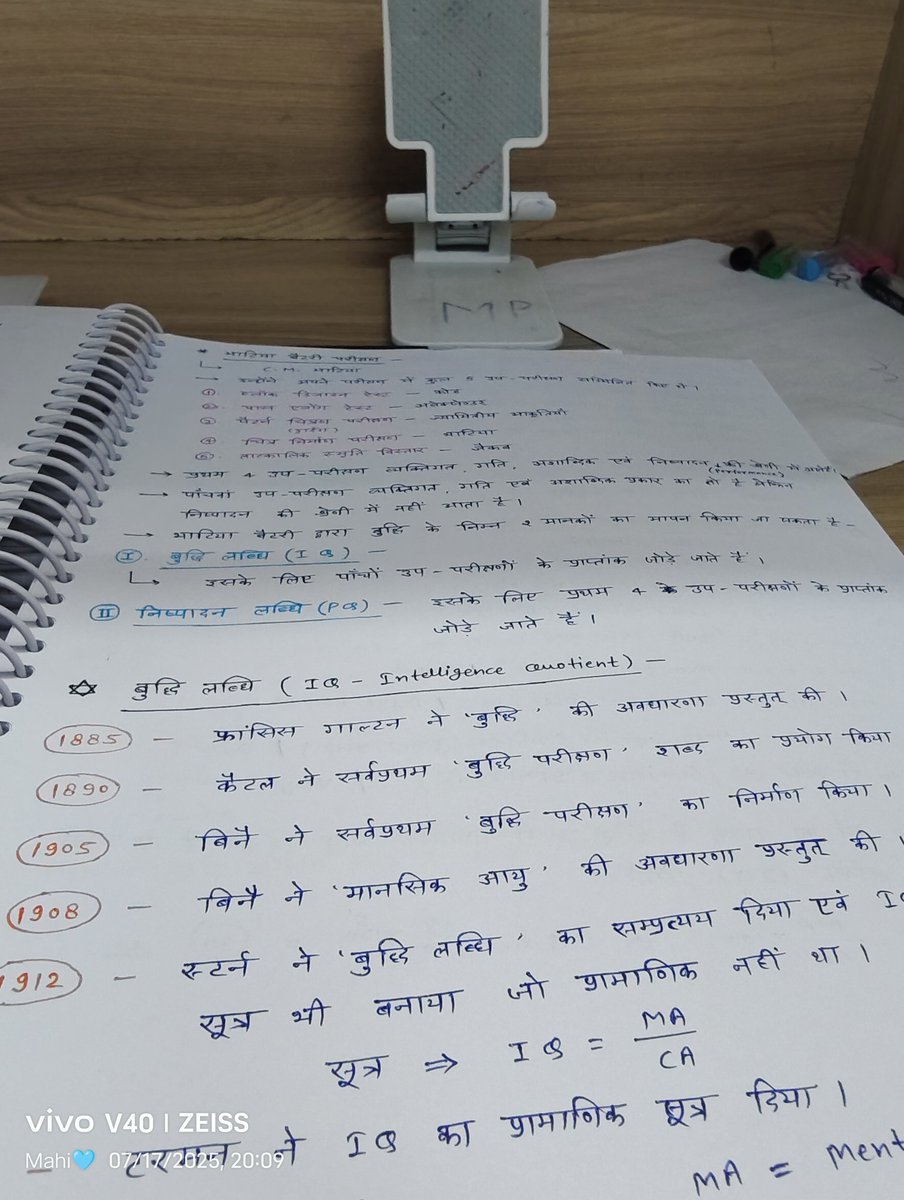 MP
* भाटिया बैटरी परीक्षण -
C.M. भाटिया
→ इन्होंने अपने परीक्षण में कुल 5 उप-परीक्षण सम्मिलित किए थे।
①. ब्लॉक डिजाइन टेस्ट - कोह
②. पास एलोंग टेस्ट - अलेक्जेण्डर
③ पैटर्न चित्रण परीक्षण - ज्यामितीय आकृतियाँ
(ड्राइंग)
④ चित्र निर्माण परीक्षण - भाटिया
⑤. तात्कालिक स्मृति विस्तार - जैकब
→ प्रथम 4 उप-परीक्षण व्यक्तिगत, गति, अशाब्दिक एवं निष्पादन की श्रेणी में
(Performance)
→ पाँचवां उप-परीक्षण व्यक्तिगत, गति एवं अशाब्दिक प्रकार का तो है लेकिन
निष्पादन की श्रेणी में नहीं आता है।
→ भाटिया बैटरी द्वारा बुद्धि के निम्न 2 मानकों का मापन किया जा सकता है -
Ⅰ. बुद्धि लब्धि (IQ) -
उसके लिए पाँचों उप-परीक्षणों के प्राप्तांक जोड़े जाते हैं।
Ⅱ निष्पादन लब्धि (PQ) - इसके लिए प्रथम 4 उप-परीक्षणों के प्राप्तांक
जोड़े जाते हैं।
☆ बुद्धि लब्धि (IQ - Intelligence Quotient) -
1885 - फ्रांसिस गाल्टन ने 'बुद्धि' की अवधारणा प्रस्तुत की।
1890 - कैटल ने सर्वप्रथम 'बुद्धि परीक्षण' शब्द का प्रयोग किया
1905 - बिनै ने सर्वप्रथम 'बुद्धि परीक्षण' का निर्माण किया।
1908 - बिनै ने 'मानसिक आयु' की अवधारणा प्रस्तुत की।
1912 - स्टर्न ने 'बुद्धि लब्धि' का सम्प्रत्यय दिया एवं IQ
सूत्र भी बनाया जो प्रामाणिक नहीं था।
सूत्र ⇒ IQ = MA / CA
- टरमन ने IQ का प्रामाणिक सूत्र दिया।
MA = Ment
vivo V40 | ZEISS
Mahi🩵 07/17/2025, 20:09